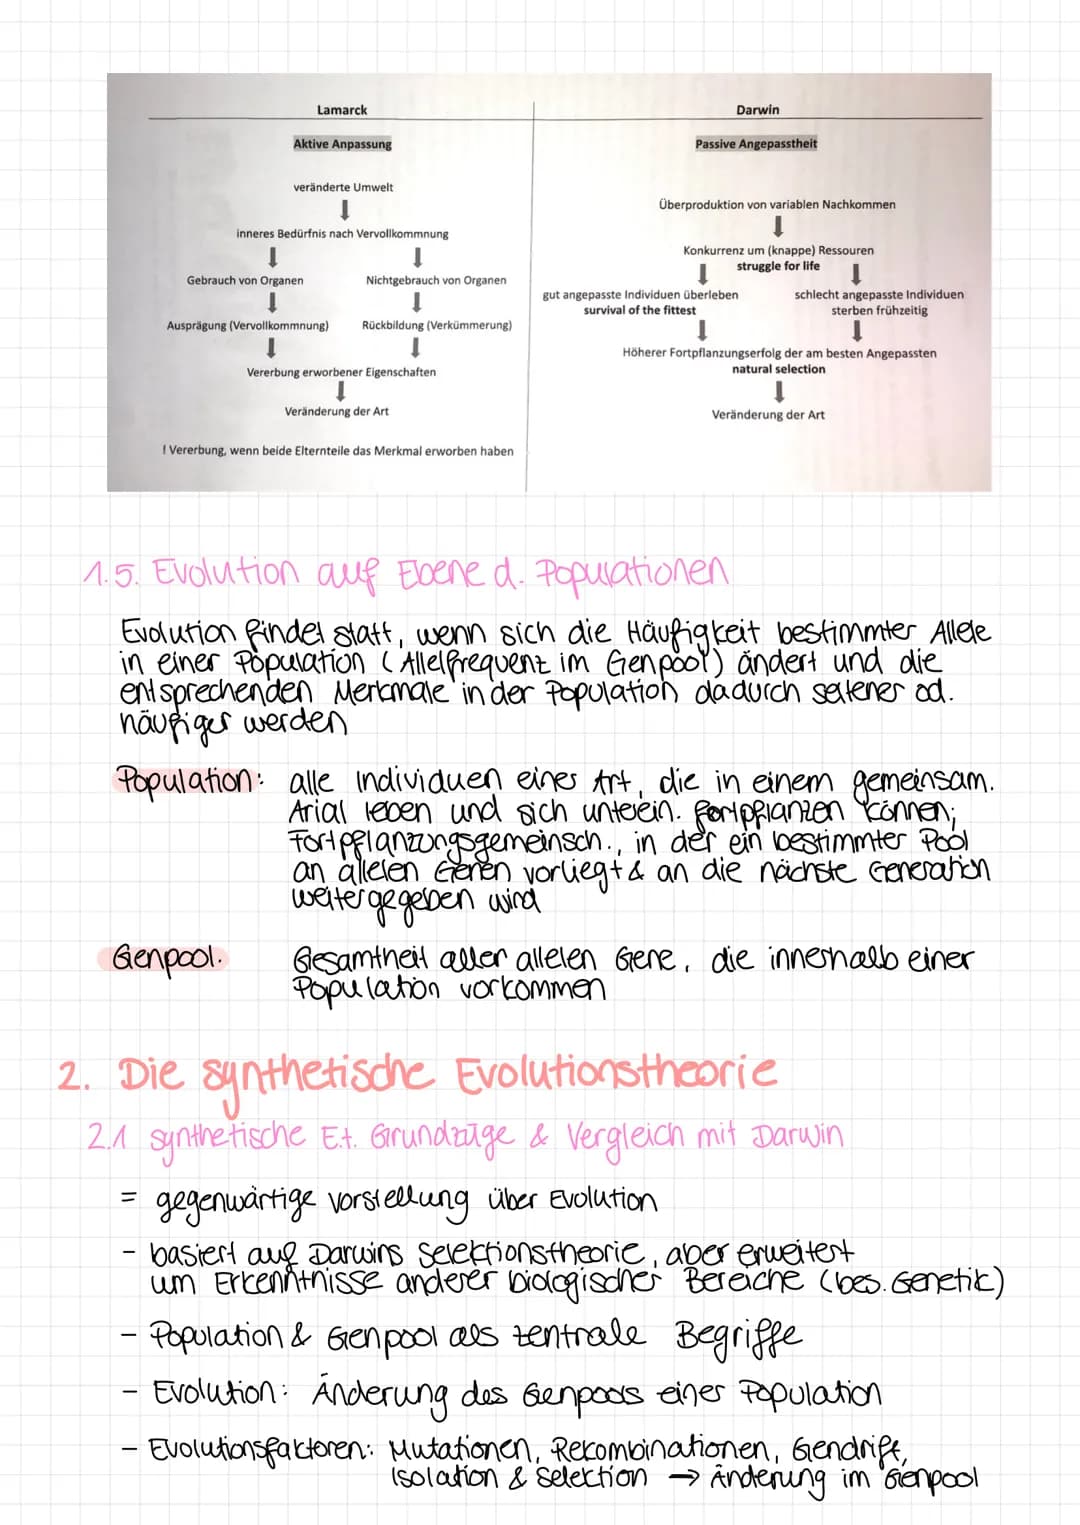 Lamarck
Aktive Anpassung
veränderte Umwelt
inneres Bedürfnis nach Vervollkommnung
Gebrauch von Organen
Nichtgebrauch von Organen
Ausprägung (Vervollkommnung)
Rückbildung (Verkümmerung)
Vererbung erworbener Eigenschaften
Veränderung der Art
! Vererbung, wenn beide Elternteile das Merkmal erworben haben
Darwin
Passive Angepasstheit
Überproduktion von variablen Nachkommen
Konkurrenz um (knappe) Ressouren
struggle for life
gut angepasste Individuen überleben
survival of the fittest
schlecht angepasste Individuen
sterben frühzeitig
Höherer Fortpflanzungserfolg der am besten Angepassten
natural selection
Veränderung der Art
1.5. Evolution auf Ebene d. Populationen
Evolution findet statt, wenn sich die Häufigkeit bestimmter Allele
in einer Population (Allelfrequenz im Genpool) ändert und die
entsprechenden Merkmale in der Population dadurch seltener od.
häufiger werden
Population: alle Individuen einer Art, die in einem gemeinsam.
Arial leben und sich unterein. fortpflanzen können;
Fortpflanzungsgemeinsch., in der ein bestimmter Pool
an allelen Genen vorliegt & an die nächste Generation
weitergegeben wird
Genpool. Gesamtheit aller allelen Gene, die innerhalb einer
Population vorkommen
2. Die synthetische Evolutionstheorie
2.1 synthetische E.t. Grundzüge & Vergleich mit Darwin
= gegenwärtige Vorstellung über Evolution
- basiert auf Darwins Selektionstheorie, aber erweitert
um Erkenntnisse anderer biologischer Bereiche (bes. Genetik)
- Population & Genpool als zentrale Begriffe
- Evolution: Änderung des Genpools einer Population
- Evolutionsfaktoren: Mutationen, Rekombinationen, Gendrift,
Isolation & Selektion → Änderung im Genpool